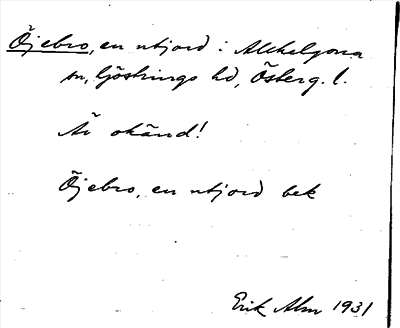 Öjebro, en utjord i Allhelgona
sn, Göstrings hd, Österg. l.
Är okänd!
Öjebro, en utjord bek
Erik Alm 1931